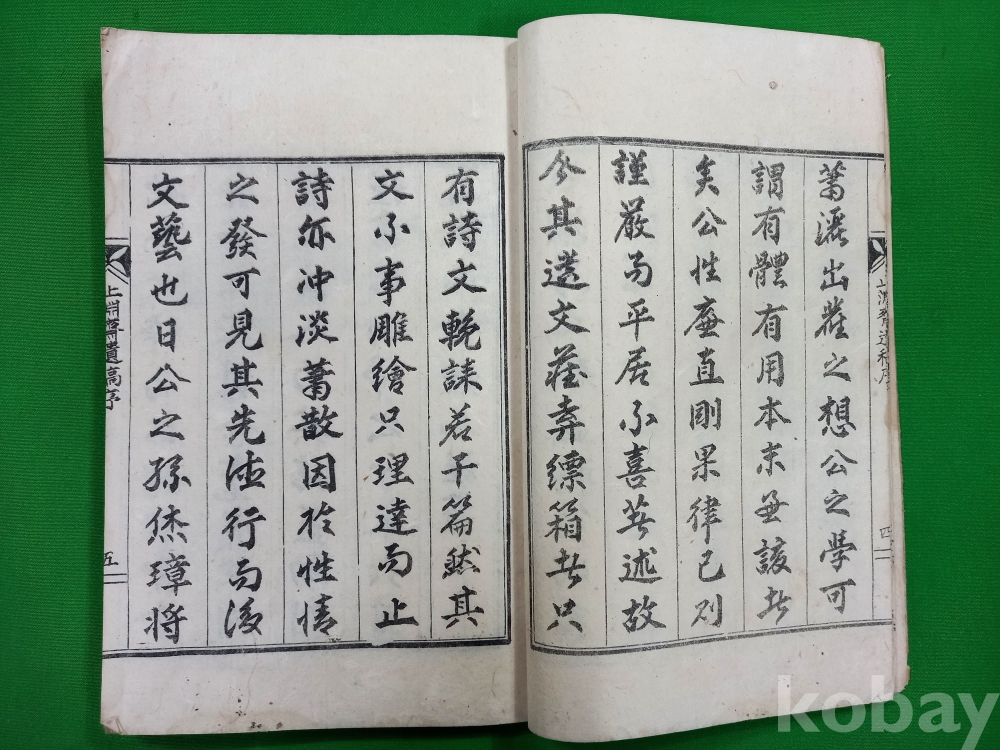 蕭灑出塵之想公之學可
謂有體有用本末兼該者
矣公性廉直剛果律己則
謹嚴而平居不喜著述故
今其遺文藏弆縹箱者只
四
有詩文輓誄若干篇然其
文不事雕繪只理達而止
詩亦冲淡蕭散因於性情
之發可見其先德行而後
文藝也日公之孫佐璋將
上淵齋遺稿序
五
kobay